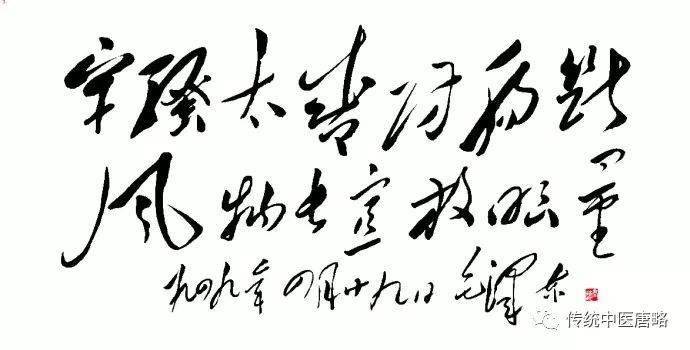 牢騷太盛防肠断
风物长宜放眼量
一九四九年 四月廿九日 毛澤东
传统中医唐略